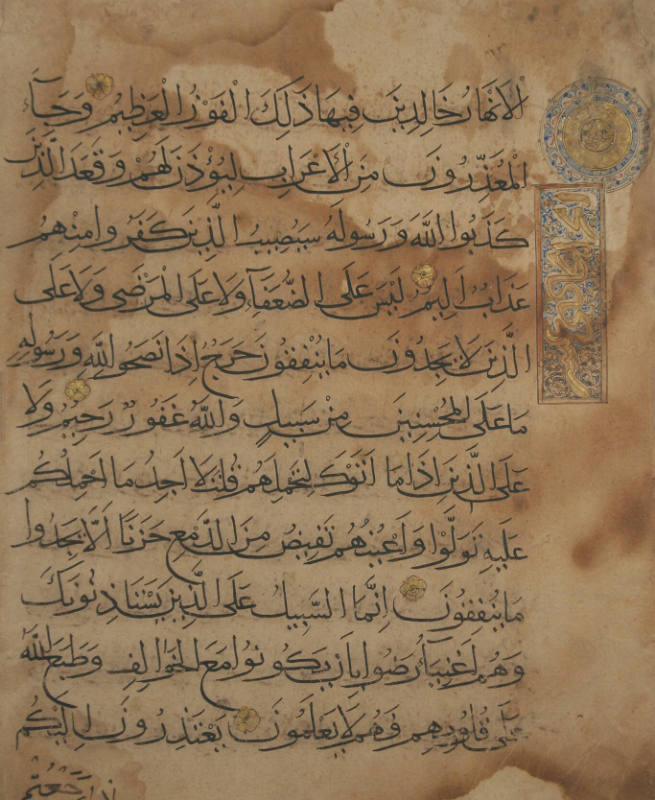 الْأَنْهَارُ خَالِدِينَ فِيهَا ذَلِكَ الْفَوْزُ الْعَظِيمُ وَجَآءَ
الْمُعَذِّرُونَ مِنَ الْأَعْرَابِ لِيُؤْذَنَ لَهُمْ وَقَعَدَ الَّذِينَ
كَذَبُوا اللَّهَ وَرَسُولَهُ سَيُصِيبُ الَّذِينَ كَفَرُوا مِنْهُمْ
عَذَابٌ أَلِيمٌ لَيْسَ عَلَى الضُّعَفَآءِ وَلَا عَلَى الْمَرْضَى وَلَا عَلَى
الَّذِينَ لَا يَجِدُونَ مَا يُنْفِقُونَ حَرَجٌ إِذَا نَصَحُوا لِلَّهِ وَرَسُولِهِ
مَا عَلَى الْمُحْسِنِينَ مِنْ سَبِيلٍ وَاللَّهُ غَفُورٌ رَحِيمٌ وَلَا
عَلَى الَّذِينَ إِذَا مَا أَتَوْكَ لِتَحْمِلَهُمْ قُلْتَ لَا أَجِدُ مَا أَحْمِلُكُمْ
عَلَيْهِ تَوَلَّوْا وَأَعْيُنُهُمْ تَفِيضُ مِنَ الدَّمْعِ حَزَنًا أَلَّا يَجِدُوا
مَا يُنْفِقُونَ إِنَّمَا السَّبِيلُ عَلَى الَّذِينَ يَسْتَأْذِنُونَكَ
وَهُمْ أَغْنِيَآءُ رَضُوا بِأَنْ يَكُونُوا مَعَ الْخَوَالِفِ وَطَبَعَ اللَّهُ
عَلَى قُلُوبِهِمْ فَهُمْ لَا يَعْلَمُونَ يَعْتَذِرُونَ إِلَيْكُمْ
إِذَا رَجَعْتُمْ